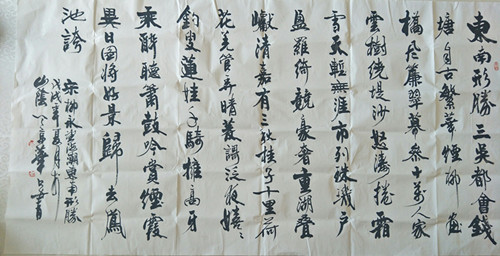 東南形勝三吳都會錢
塘自古繁華煙柳畫
橋風簾翠幕參十萬人家
雲樹繞堤沙怒濤捲霜
雪天塹無涯市列珠璣戶
盈羅綺競豪奢重湖疊
巘清嘉有三秋桂子十里荷
花羌管弄晴菱謌泛夜嬉〻
釣叟蓮娃千騎擁高牙
乘醉聽簫鼓吟賞煙霞
異日圖將好景歸去鳳
池誇
宋柳永望海潮東南形勝
戊戌年夏月於
山陰